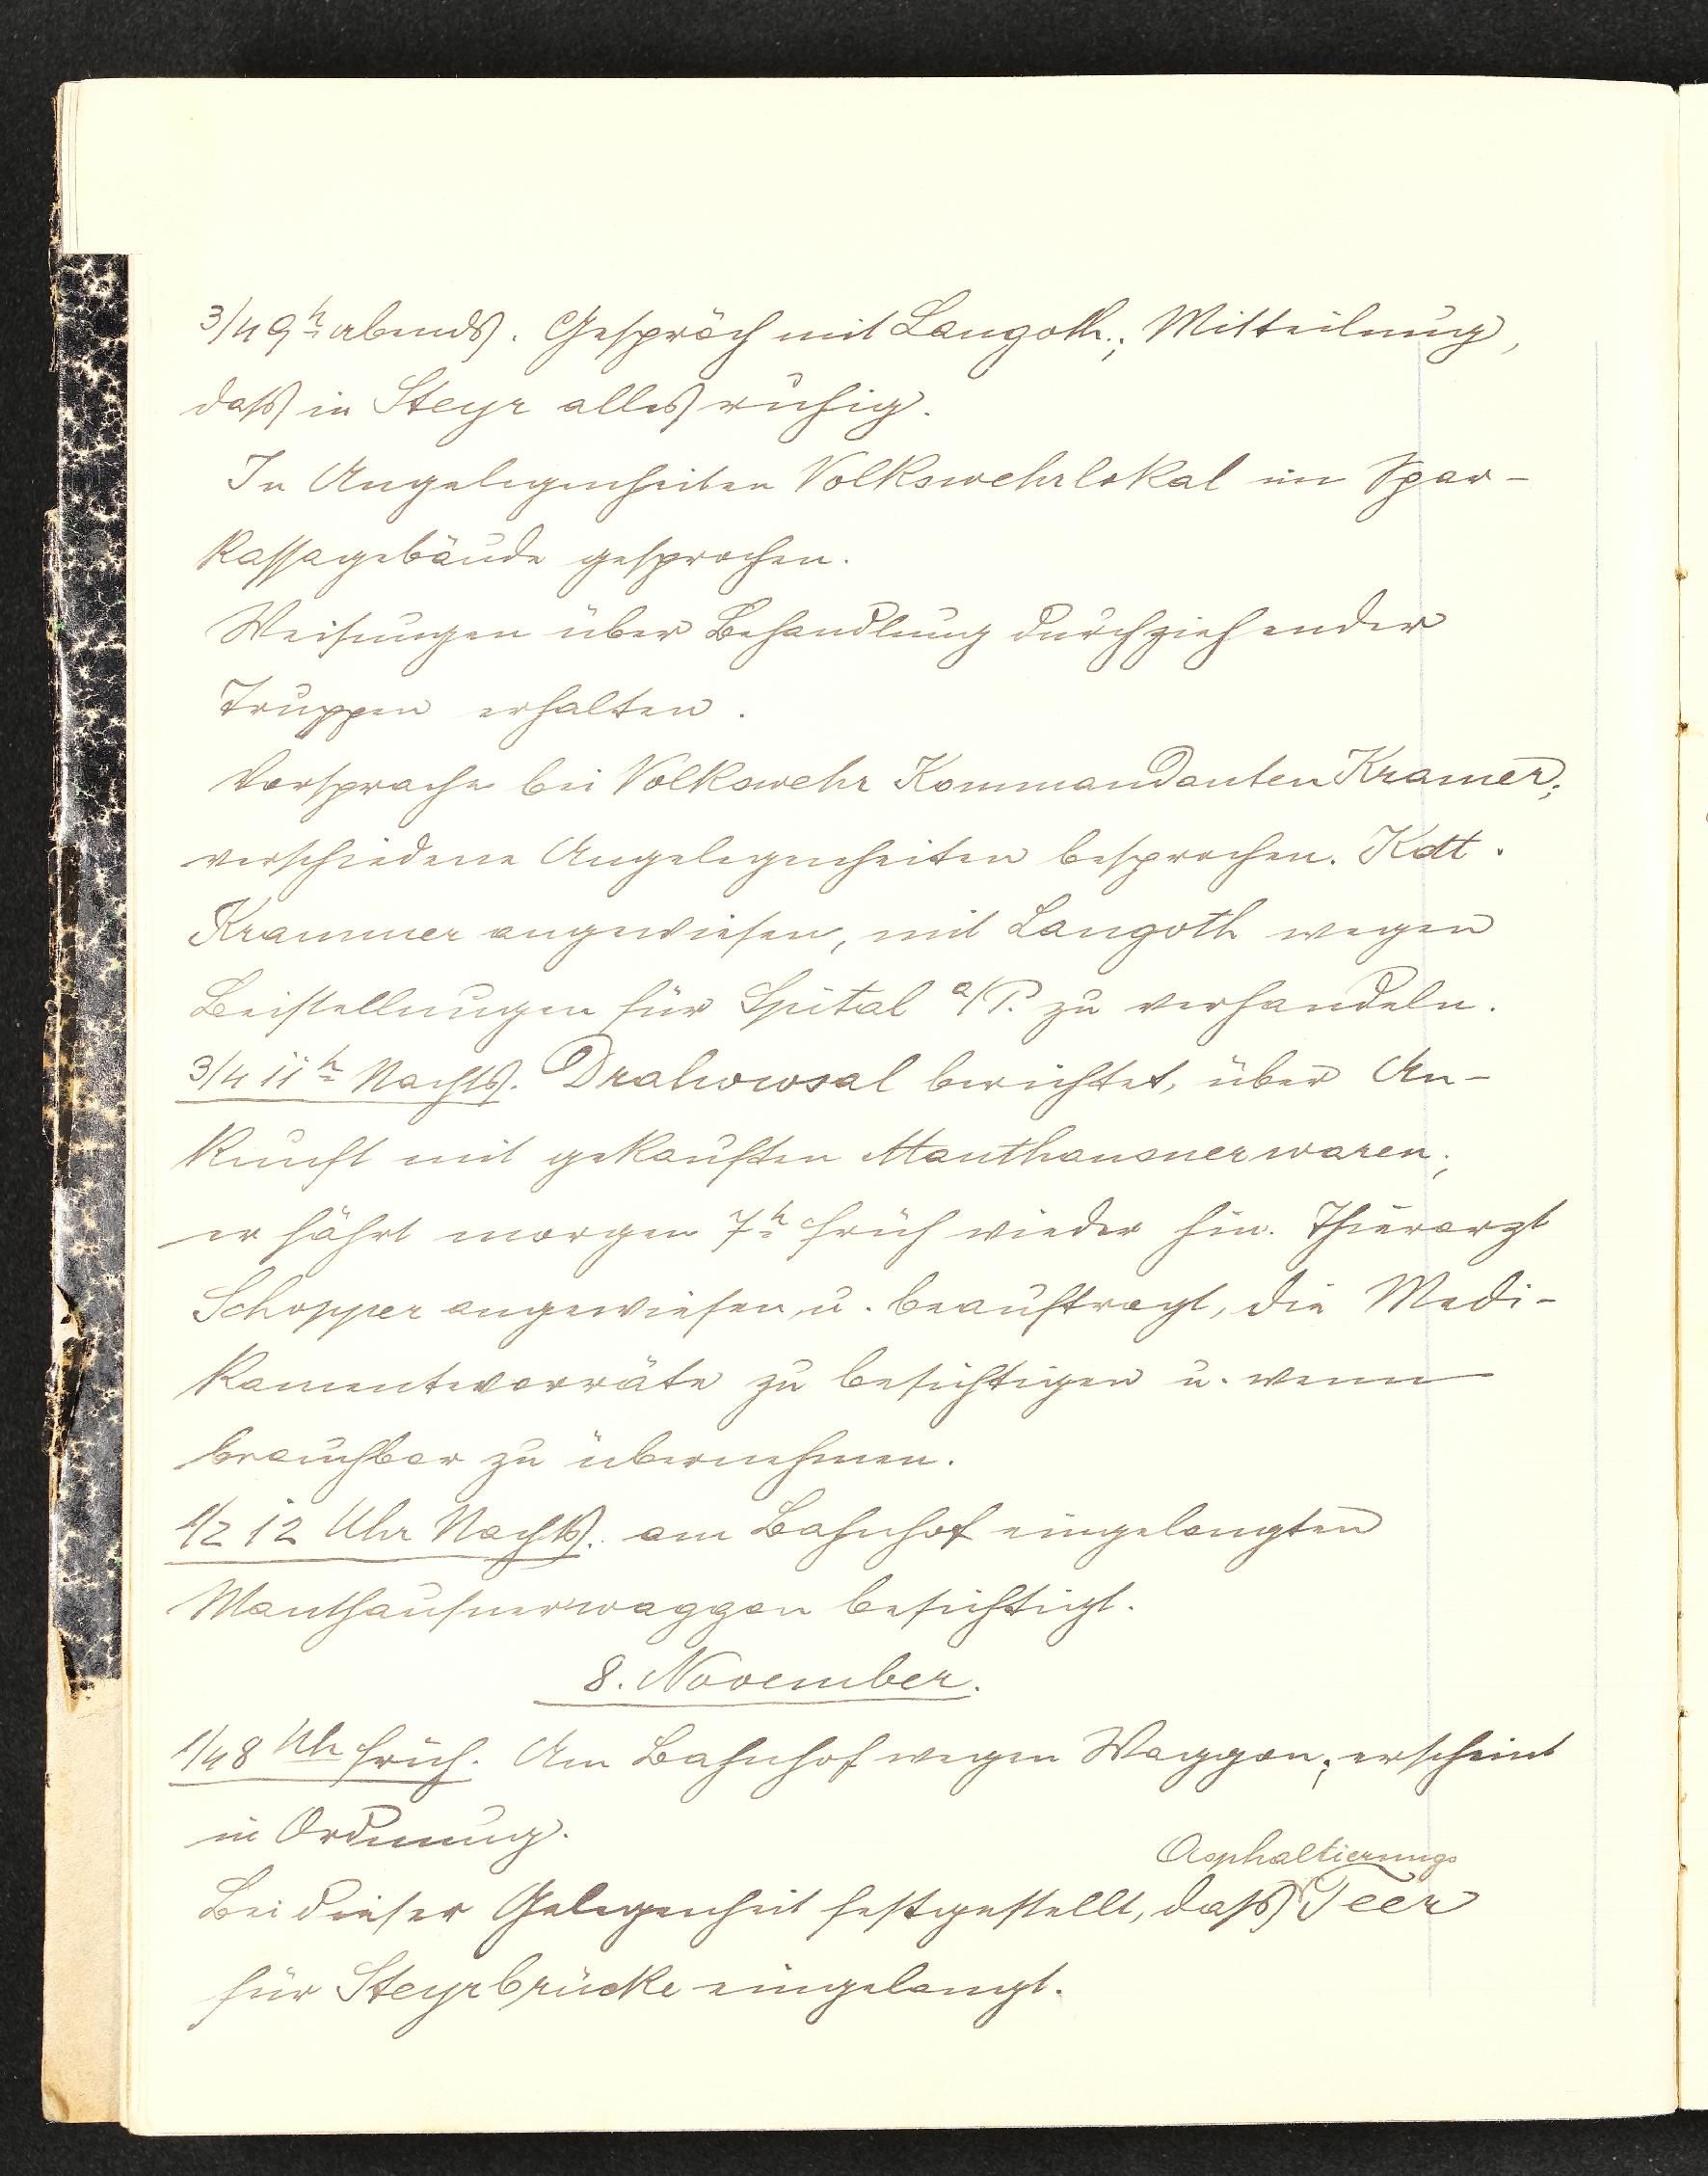 3/4 9h abends. Gespräch mit Langoth.; Mitteilung,
daß in Steyr alles ruhig.
In Angelegenheiten Volkswehrlokal im Spar-
kassagebäude gesprochen.
Weisungen über Behandlung durchziehender
Truppen erhalten.
Vorsprache bei Volkswehr Kommandanten Kramer;
verschiedene Angelegenheiten besprochen. Kdt.
Krammer angewiesen, mit Langoth wegen
Beistellungen für Spital a/P. zu verhandeln.
3/4 11h Nachts. Drahowsal berichtet, über An-
kunft mit gekauften Mauthausnerwaren;
er fährt morgen 7h früh wieder hin. Thierarzt
Schopper angewiesen u. beauftragt, die Medi-
kamentevorräte zu besichtigen u. wenn
brauchbar zu übernehmen.
1/2 12 Uhr Nachts. am Bahnhof eingelangten
Mauthausnerwaggon besichtigt.
8. November.
1/4 8 Uh früh. Am Bahnhof wegen Waggon; erscheint
in Ordnung.
Asphaltierungs
Bei dieser Gelegenheit festgestellt, daß Teer
für Steyrbrücke eingelangt.